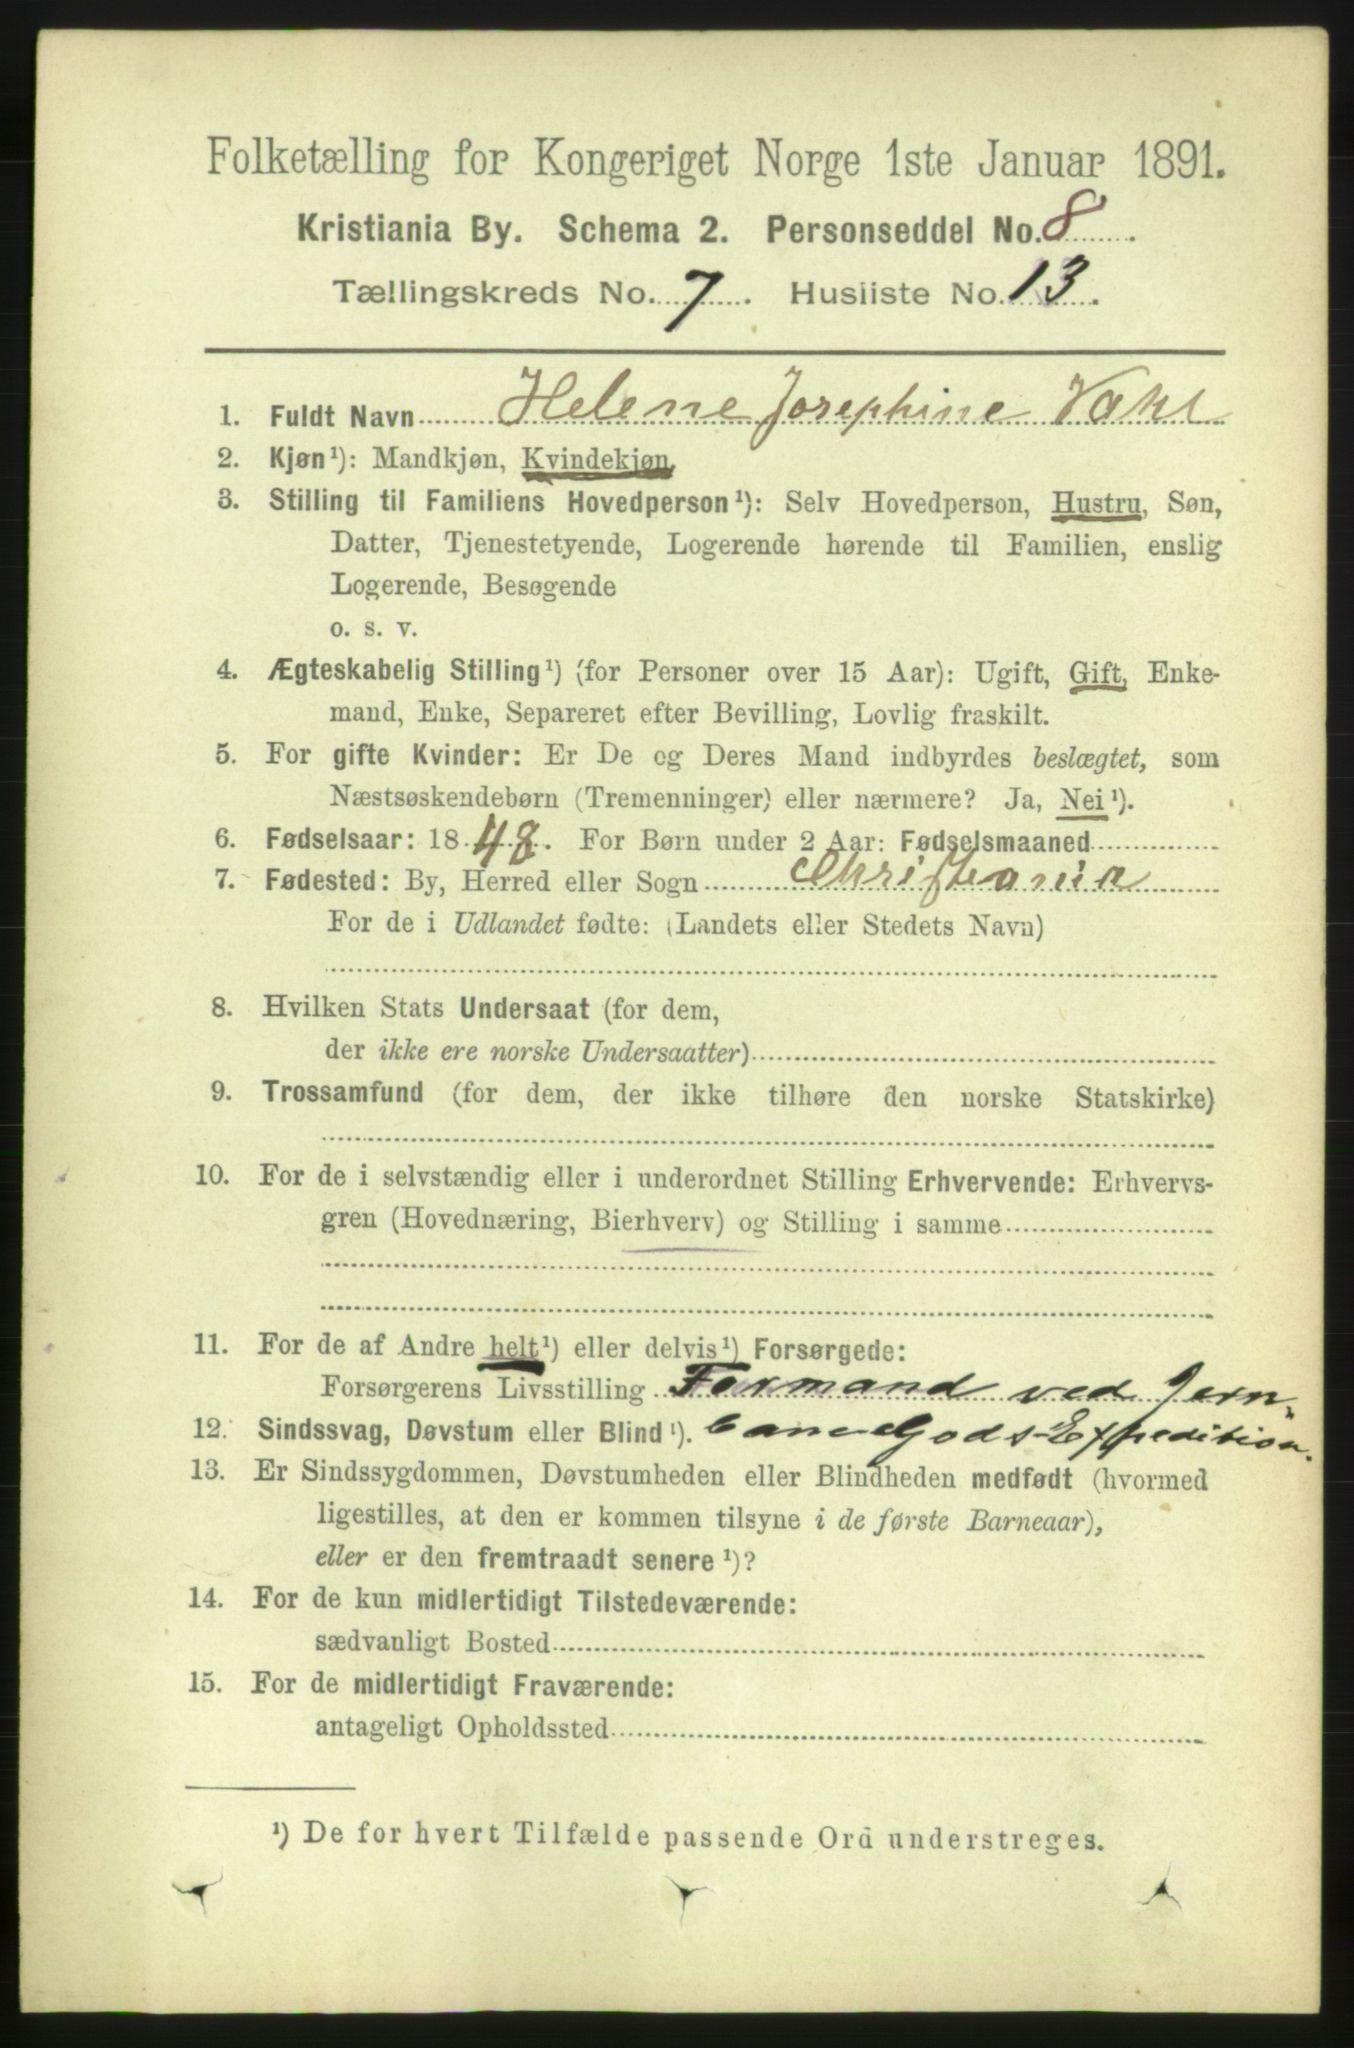 Folketælling for Kongeriget Norge 1ste Januar 1891.
Kristiania By. Schema 2. Personseddel No. 8.
Tællingskreds No. 7. Husliste No. 13.
1. Fuldt Navn Helene Josephine Vahl
2. Kjøn¹): Mandkjøn, Kvindekjøn.
3. Stilling til Familiens Hovedperson¹): Selv Hovedperson, Hustru, Søn,
Datter, Tjenestetyende, Logerende hørende til Familien, enslig
Logerende, Besøgende
o. s. v.
4. Ægteskabelig Stilling¹) (for Personer over 15 Aar): Ugift, Gift, Enke-
mand, Enke, Separeret efter Bevilling, Lovlig fraskilt.
5. For gifte Kvinder: Er De og Deres Mand indbyrdes beslægtet, som
Næstsøskendebørn (Tremenninger) eller nærmere? Ja, Nei¹).
6. Fødselsaar: 1848. For Børn under 2 Aar: Fødselsmaaned
7. Fødested: By, Herred eller Sogn Christiania
For de i Udlandet fødte: (Landets eller Stedets Navn)
8. Hvilken Stats Undersaat (for dem,
der ikke ere norske Undersaatter)
9. Trossamfund (for dem, der ikke tilhøre den norske Statskirke)
10. For de i selvstændig eller i underordnet Stilling Erhvervende: Erhvervs-
gren (Hovednæring, Bierhverv) og Stilling i samme
11. For de af Andre helt¹) eller delvis¹) Forsørgede:
Forsørgerens Livsstilling Formand ved Jern-
12. Sindssvag, Døvstum eller Blind¹). bane Gods-Expedition.
13. Er Sindssygdommen, Døvstumheden eller Blindheden medfødt (hvormed
ligestilles, at den er kommen tilsyne i de første Barneaar),
eller er den fremtraadt senere¹)?
14. For de kun midlertidigt Tilstedeværende:
sædvanligt Bosted
15. For de midlertidigt Fraværende:
antageligt Opholdssted
¹) De for hvert Tilfælde passende Ord understreges.